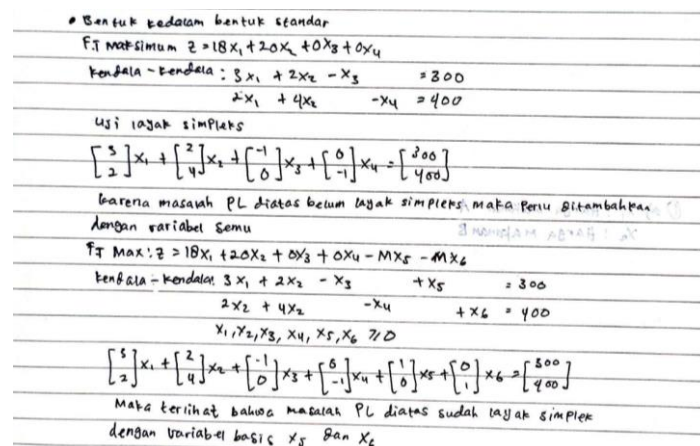 • Bentuk kedalam bentuk standar
F.T Maksimum z = 18x₁ + 20x₂ + 0x₃ + 0x₄
Kendala - Kendala : 3x₁ + 2x₂ - x₃ = 300
2x₁ + 4x₂ -x₄ = 400
Uji layak simpleks
[3 2]x₁ + [2 4]x₂ + [-1 0]x₃ + [0 -1]x₄ = [300 400]
karena masalah PL diatas belum layak simpleks maka perlu ditambahkan
dengan variabel semu
FT Max : z = 18x₁ + 20x₂ + 0x₃ + 0x₄ - Mx₅ - Mx₆
Kendala - Kendala: 3x₁ + 2x₂ - x₃ + x₅ = 300
2x₂ + 4x₂ -x₄ + x₆ = 400
x₁, x₂, x₃, x₄, x₅, x₆ ≥ 0
[3 2]x₁ + [2 4]x₂ + [-1 0]x₃ + [0 -1]x₄ + [1 0]x₅ + [0 1]x₆ = [300 400]
Maka terlihat bahwa masalah PL diatas sudah layak simplek
dengan variabel basis x₅ dan x₆